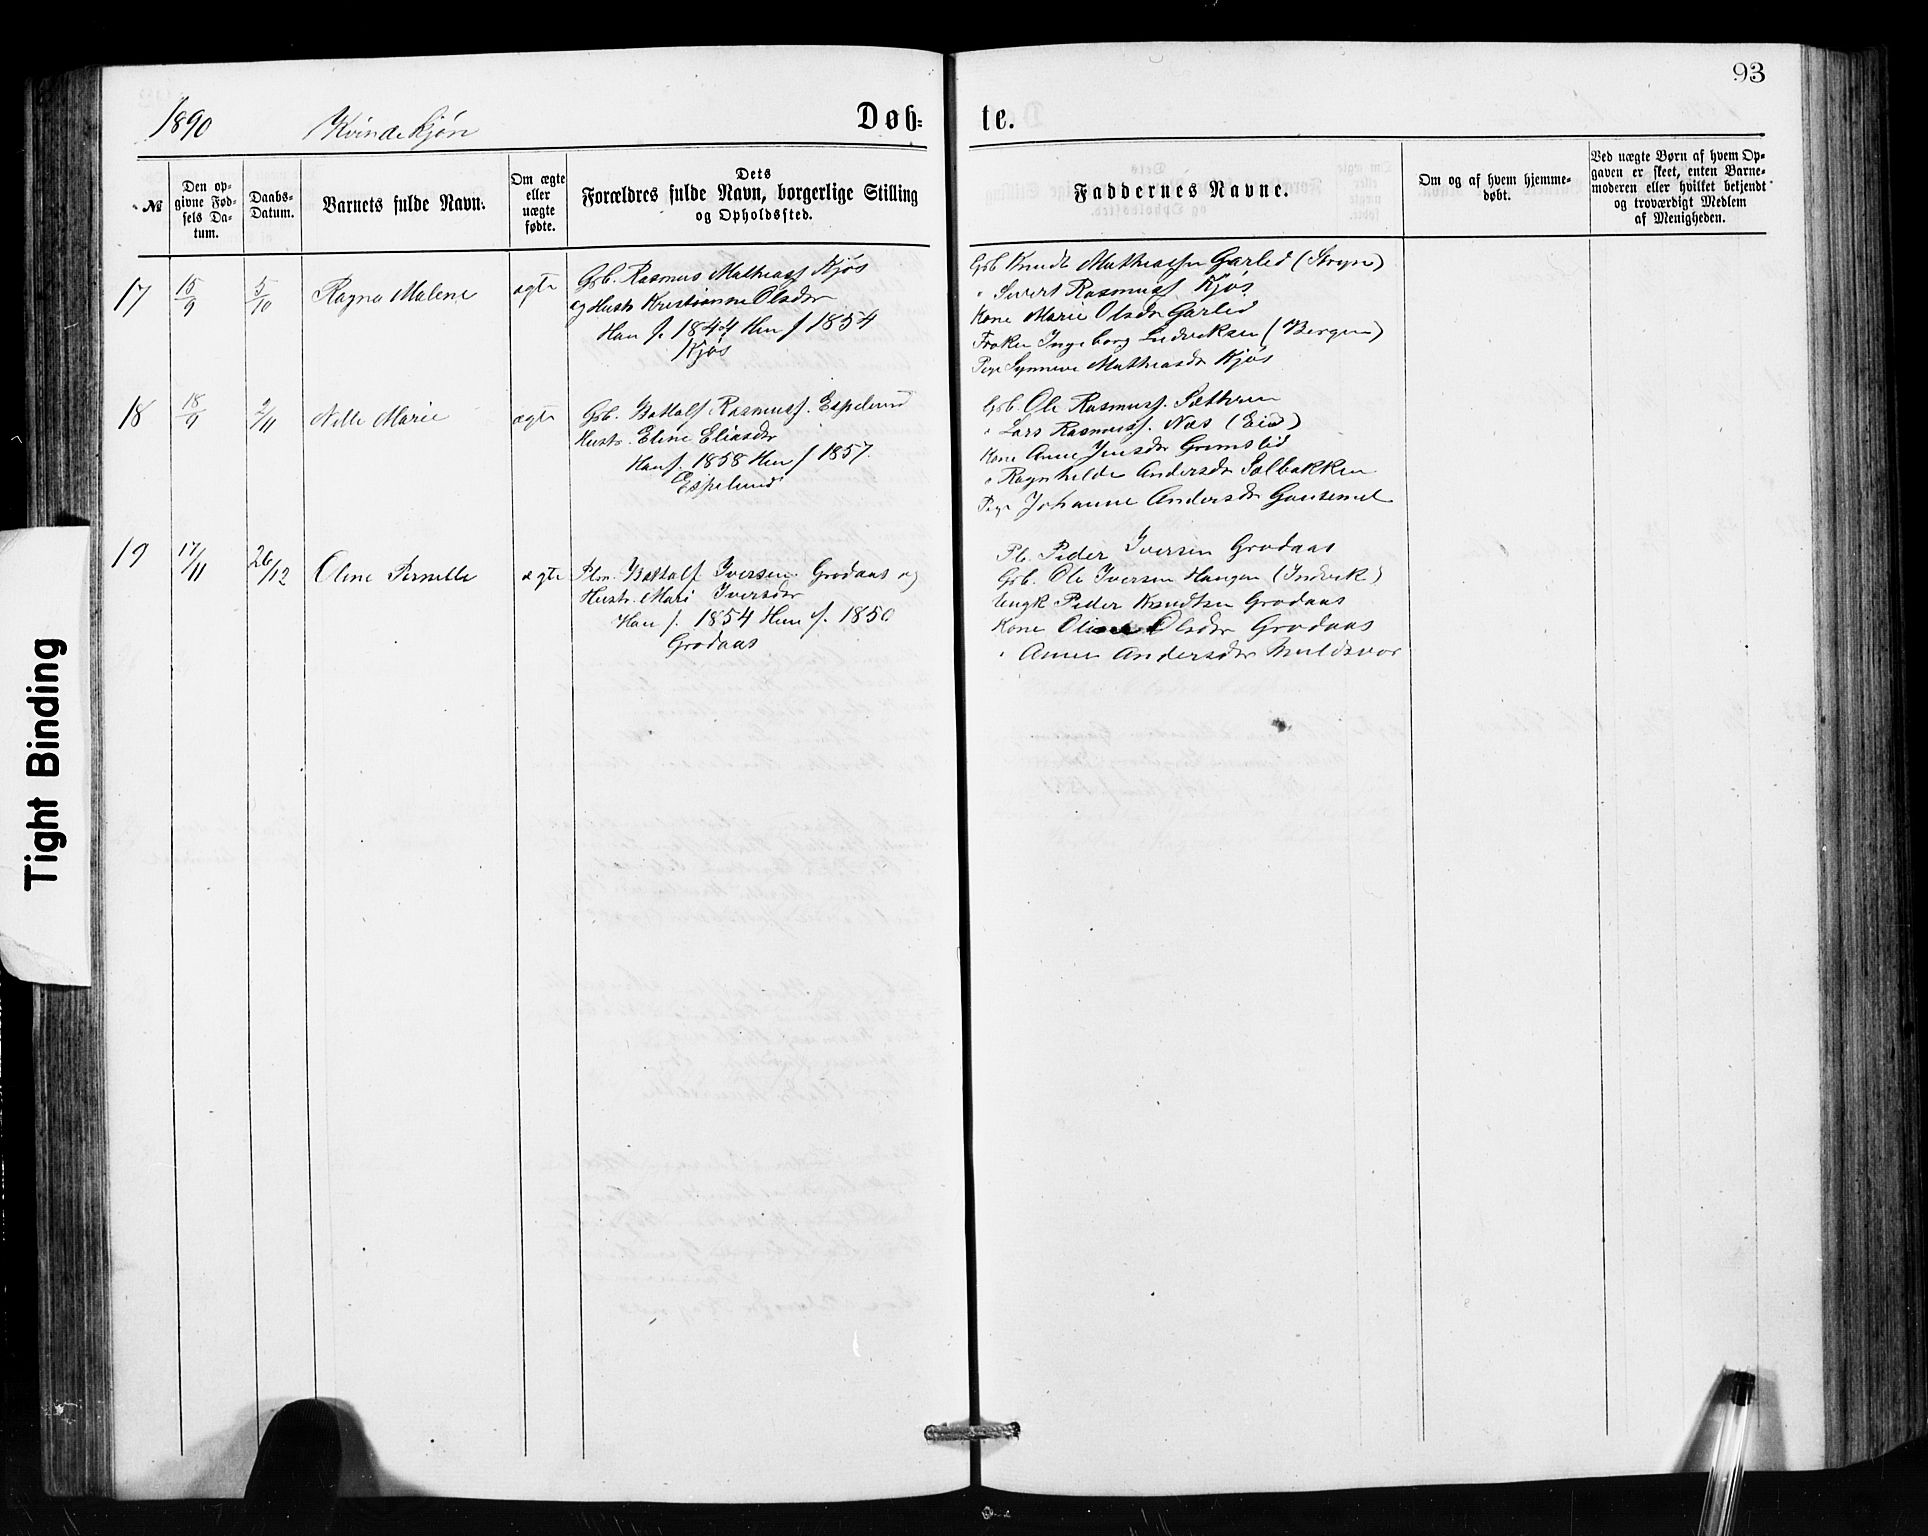 93
1890 Kvindekjøn Døb= te.
№
Den opgivne Fødsels Datum.
Daabs-Datum.
Barnets fulde Navn.
Om ægte eller uægte fødte.
Dets Forældres fulde Navn, borgerlige Stilling og Opholdssted.
Faddernes Navne.
Om og af hvem hjemmedøbt.
Ved uægte Børn af hvem Opgaven er skeet, enten Barnemoderen eller hvilket bekjendt og troværdigt Medlem af Menigheden.
17 15/9 5/10 Ragna Malene ægte
Gbr. Rasmus Mathiass Kjøs
og Hustr Kristianne Olsdr
Han f. 1844 Hun f 1854
Kjøs
Gbr Knudt Mathiassen Garlid (Stryn)
" Sivert Rasmuss Kjøs
Kone Marie Olsdr Garlid
Frøken Ingeborg Ludviksen (Bergen)
Pige Synneve Mathiasdr Kjøs
18 18/9 2/11 Nille Marie ægte
Gbr. Battalf Rasmuss. Espelund
Hustr. Eline Eliasdr
Han f. 1858 Hun f 1857.
Espelund
Gbr. Ole Rasmuss. Sætteren
" Lars Rasmuss. Nos (Eid)
Kone Anne Jensdr Grimslid
" Ragnhilde Andersdr Solbakken
Pige Johanne Andersdr Gausemel
19 17/11 26/12 Oline Pernille ægte
Plm. Battalf Iversen Grodaas og
Hustr. Mari Iversdr
Han f. 1854 Hun f. 1850
Grodaas
Pl. Peder Iversen Grodaas
Gbr. Ole Iversen Haugen (Indvik)
Ungk Peder Knudtsen Grodaas
Kone Oline Olsdr Grodaas
" Anne Andersdr Muldsvor
Tight Binding